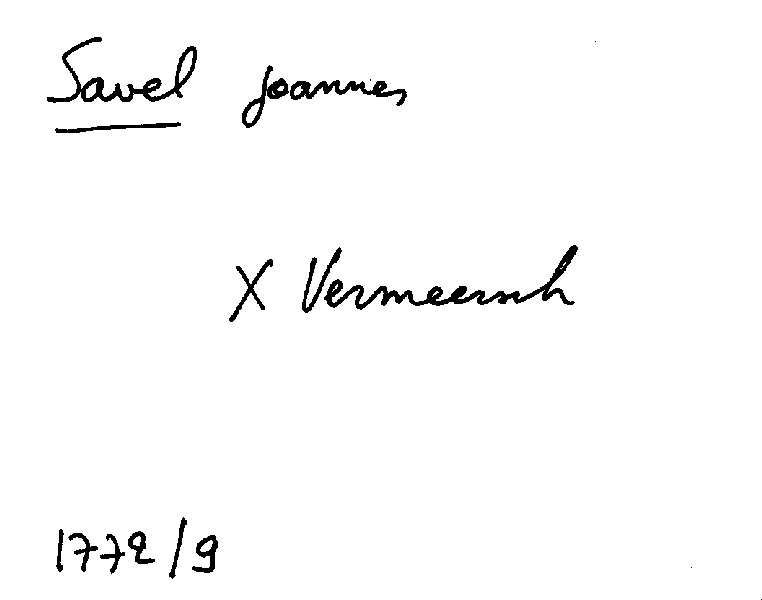 Savel Joannes
X Vermeersch
1772/9